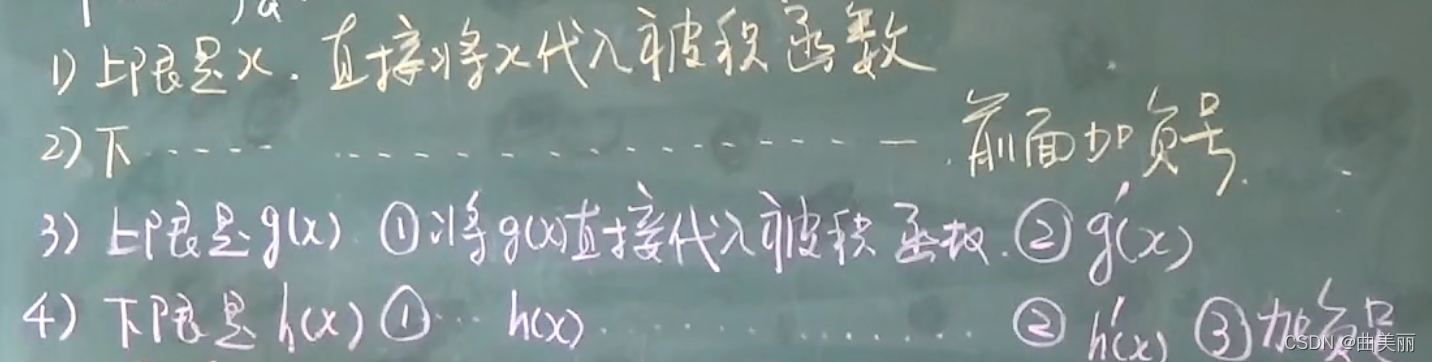 1) 上限是x. 直接将x代入被积函数
2) 下 ---- ---------------. 前面加负号.
3) 上限是g(x) ①将g(x)直接代入被积函数. ② g'(x)
4) 下限是h(x) ①... h(x)........... ② h'(x) ③加负号
CSDN @曲美丽